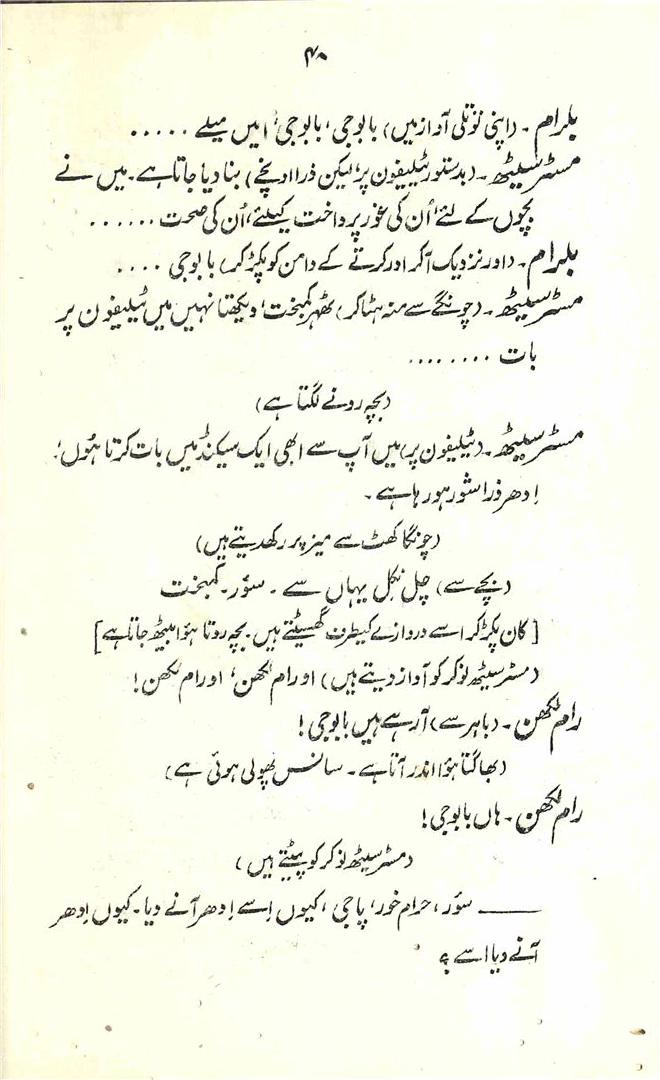 ۴۰
بلرام۔ (اپنی توتلی آواز میں) بابو جی، بابو جی، امیں میلے .....
مسٹر سیٹھ۔ (بدستور ٹیلیفون پر، لیکن ذرا اونچے) بنا دیا جاتا ہے۔ میں نے
بچوں کے لئے، اُن کی غور پرداخت کیلئے، اُن کی صحت ......
بلرام۔ (اور نزدیک آ کر اور کرتے کے دامن کو پکڑ کر) بابو جی ....
مسٹر سیٹھ۔ (چونگے سے منہ ہٹا کر) ٹھہر کمبخت، دیکھتا نہیں میں ٹیلیفون پر
بات ........
(بچہ رونے لگتا ہے)
مسٹر سیٹھ۔ (ٹیلیفون پر) میں آپ سے ابھی ایک سیکنڈ میں بات کرتا ہُوں،
اِدھر ذرا شور ہو رہا ہے۔
(چونگا کھٹ سے میز پر رکھدیتے ہیں)
(بچے سے) چل نکل یہاں سے۔ سؤر۔ کمبخت
[کان پکڑ کر اسے دروازے کیطرف گھسیٹتے ہیں۔ بچہ روتا ہؤا بیٹھ جاتا ہے]
(مسٹر سیٹھ نوکر کو آواز دیتے ہیں) او رام لکھن، او رام لکھن!
رام لکھن۔ (باہر سے) آ رہے ہیں بابو جی!
(بھاگتا ہؤا اندر آتا ہے۔ سانس پھولی ہوئی ہے)
رام لکھن۔ ہاں بابو جی!
(مسٹر سیٹھ نوکر کو پیٹتے ہیں)
—— سؤر، حرام خور، پاجی، کیوں اِسے اِدھر آنے دیا۔ کیوں اِدھر
آنے دیا اسے؟